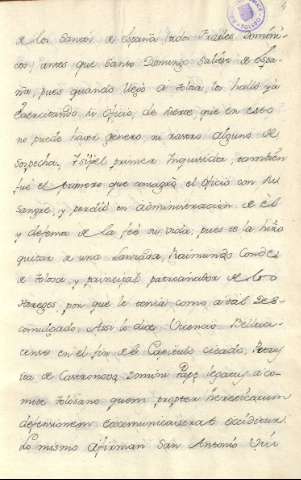 de los Santos de España todo Frailes Domini
cos, antes que Santo Domingo saliese de Espa
ña, pues quando llego a tolosa, lo hallo ya
Exercitando su oficio, de suerte que en esto
no puede haver genero, ni rastro alguno de
sospecha, primer inquisidor, tambien
fue el primero que consagro el oficio con su
sangre, y perdio en administracion de el
y defensa de la feé su vida, pues se la hiso
quitar a una lansada, Raimundo Conde
de tolosa, y principal patrocinador de los
Hereges, por que le tenia como a tal des
comulgado, Assi lo dice Vicencio Bellua
cense en el fin del Capitulo citado, Petrus
de Castronovo Domini Papę legatus a co
mite tolosano quem propter hereticorum
defensionem excomunicaverat occiditur
lo mismo afirman San Antonio